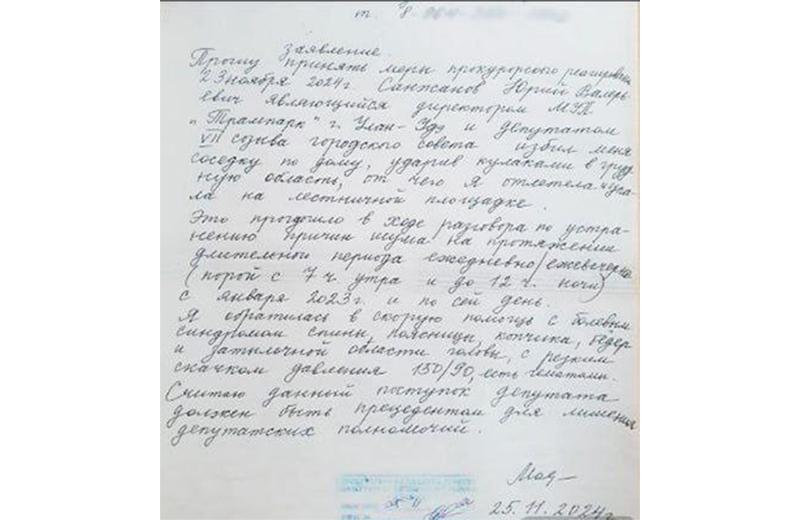 т. 8
заявление.
Прошу принять меры прокурорсого реагирования
23 ноября 2024г Санжанов Юрий Валерь-
евич являющийся директором МУП
„Трампарк" г. Улан-Удэ и депутатом
VII созыва городского совета избил меня
соседку по дому, ударив кулаками в груд-
ную область, от чего я отлетела и упа-
ла на лестничной площадке.
Это произошло в ходе разговора по устра-
нению причин шума на протяжении
длительной периода ежедневно/ежевечерне
(порой с 7 ч. утра и до 12 ч. ночи)
с января 2023 г. и по сей день.
Я обратилась в скорую помощь с болевым
синдромом спины, поясницы, копчика, бедер
и затылочной области головы, с резким
скачком давления 150/90, есть гематомы.
Считаю данный поступок депутата
должен быть прецедентом для лишения
депутатских полномочий.
25.11.2024г